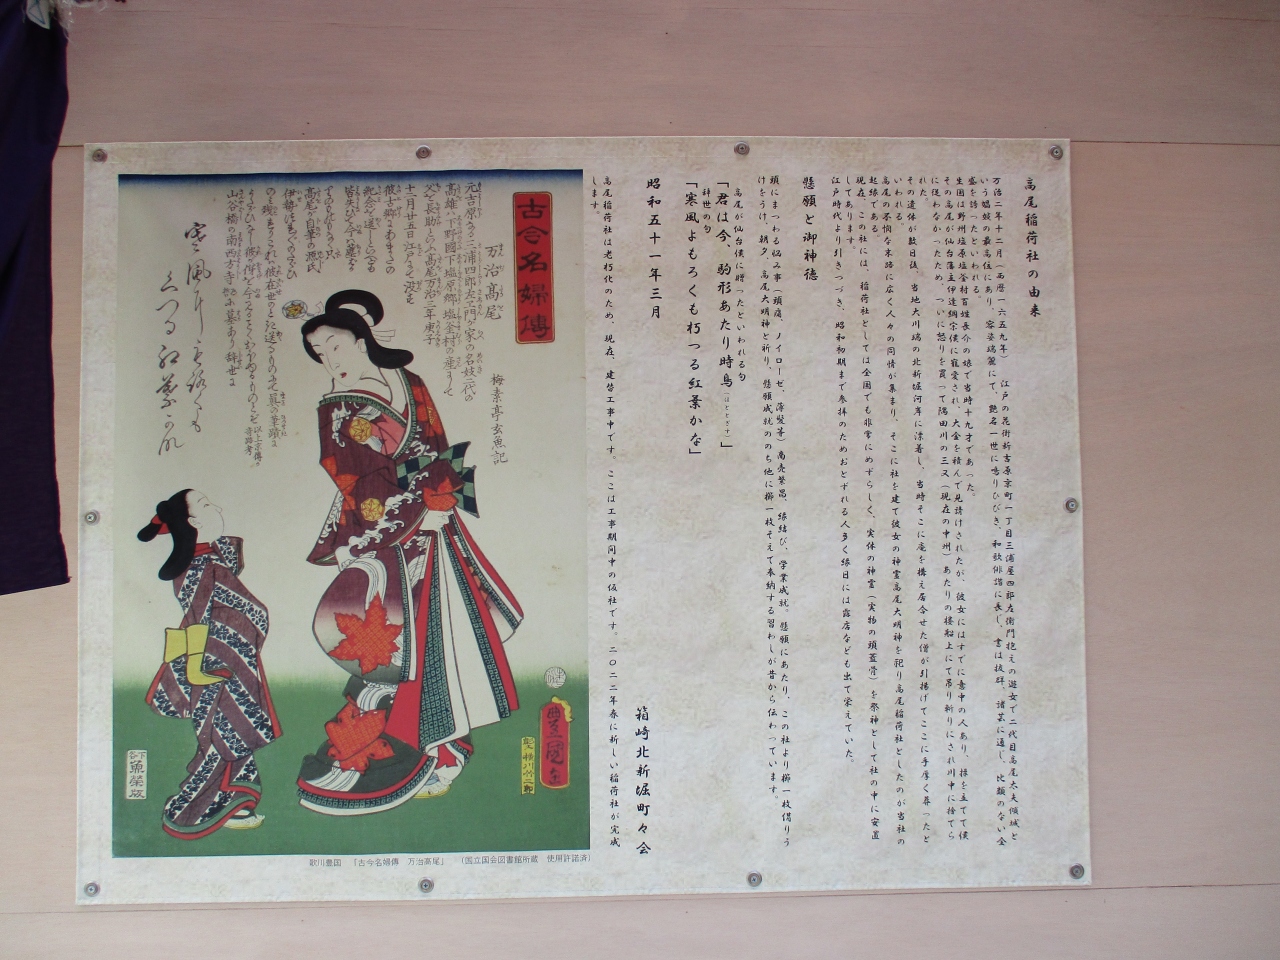 高尾稲荷社の由来
万治二年十二月(西暦一六五九年) 江戸の花街新吉原京町一丁目三浦屋四郎左衛門抱えの遊女で二代目高尾太夫傾城と
いう娼妓の最高位にあり、容姿端麗にて、艶名一世に鳴りひびき、和歌俳諧に長じ、書は抜群、諸芸に通じ、比類のない全
盛を誇ったといわれる。
生国は野州塩原塩釜村百姓長介の娘で当時十九才であった。
その高尾が仙台藩主伊達綱宗侯に寵愛され、大金を積んで見請けされたが、彼女にはすでに意中の人あり、操を立てて侯
に従わなかったため、ついに怒りを買って隅田川の三又(現在の中州)あたりの楼船上にて吊り斬りにされ川中に捨てら
れた。
その遺体が数日後、当地大川端の北新堀河岸に漂着し、当時そこに庵を構え居合せた僧が引揚げてここに手厚く葬ったと
いわれる。
高尾の不憫な末路に広く人々の同情が集まり、そこに社を建て彼女の神霊高尾大明神を祀り高尾稲荷社としたのが当社の
起縁である。
現在、この社には、稲荷社としては全国でも非常にめずらしく、実体の神霊(実物の頭蓋骨)を祭神として社の中に安置
してあります。
江戸時代より引きつづき、昭和初期まで参拝のためおとずれる人多く縁日には露店なども出て栄えていた。
懸願と御神徳
頭にまつわる悩み事(頭痛、ノイローゼ、薄髪等)商売繁昌、縁結び、学業成就。懸願にあたり、この社より櫛一枚借りう
けをうけ、朝夕、高尾大明神と祈り、懸願成就ののち他に櫛一枚そえて奉納する習わしが昔から伝わっています。
高尾が仙台侯に贈ったといわれる句
「君は今、駒形あたり時鳥(ほととぎす)」
辞世の句
「寒風よもろくも朽つる紅葉かな」
昭和五十一年三月
箱崎北新堀町々会
高尾稲荷社は老朽化のため、現在、建替工事中です。ここは工事期間中の仮社です。二〇二二年春に新しい稲荷社が完成
します。
古今名婦傳
万治高尾
梅素亭玄魚記
元吉原なる三浦四郎左エ門が家の名妓二代の
高雄ハ下野國下塩原郷塩釜村の産にして
父を長助といふ高尾万治三年庚子
十二月廿五日江戸にて没す
山谷橋の南西方寺に墓あり辞世に
寒風にもろくも
くつる紅葉かな
豊國画
彫工横川竹二郎
下谷
魚栄版
歌川豊国 「古今名婦傳 万治高尾」 (国立国会図書館所蔵 使用許諾済)